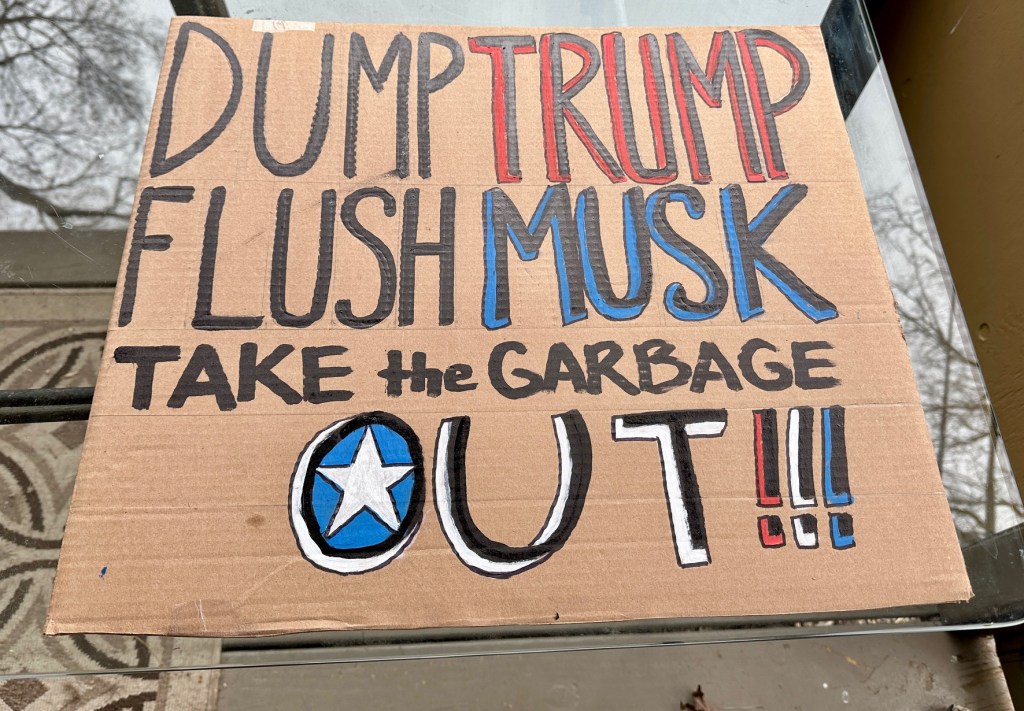 DUMP TRUMP
FLUSH MUSK
TAKE the GARBAGE
OUT!!!